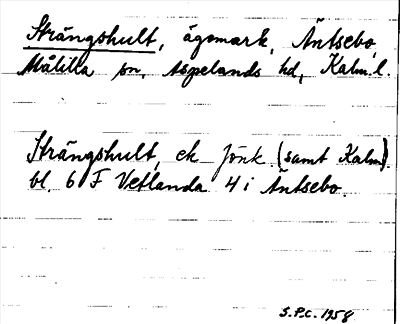 Strängshult, ägomark, Äntsebo,
Målilla sn, Aspelands hd, Kalm. l.
Strängshult, ek Jönk. (samt Kalm).
bl. 6 F Vetlanda 4 i Äntsebo.
S.P.C. 1958